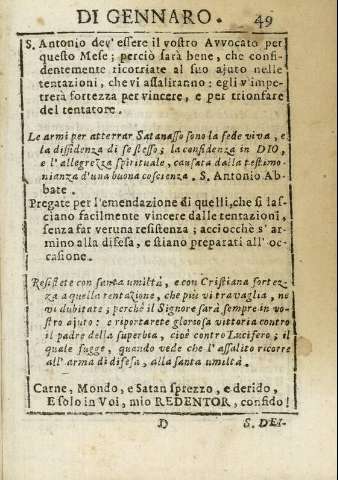 DI GENNARO. 49
S. Antonio dev' essere il vostro Avvocato per
questo Mese; perciò sarà bene, che confi-
dentemente ricorriate al suo ajuto nelle
tentazioni, che vi assaliranno: egli v'impe-
trerà fortezza per vincere, e per trionfare
del tentatore.
Le armi per atterrar Satanasso sono la fede viva, e
la diffidenza di se stesso; la confidenza in DIO,
e l'allegrezza spirituale, causata dalla testimo-
nianza d'una buona coscienza. S. Antonio Ab-
bate.
Pregate per l'emendazione di quelli, che si las-
ciano facilmente vincere dalle tentazioni,
senza far veruna resistenza; acciocchè s' ar-
mino alla difesa, e stiano preparati all' oc-
casione.
Resistete con santa umiltà, e con Cristiana fortez-
za a quella tentazione, che più vi travaglia, no
vi dubitate; perchè il Signore sarà sempre in vo-
stro ajuto: e riportarete gloriosa vittoria contro
il padre della superbia, cioè contro Lucifero; il
quale fugge, quando vede che l'assalito ricorre
all' arma di difesa, alla santa umiltà.
Carne, Mondo, e Satan sprezzo, e derido,
E solo in Voi, mio REDENTOR, confido!
D S. DEI-